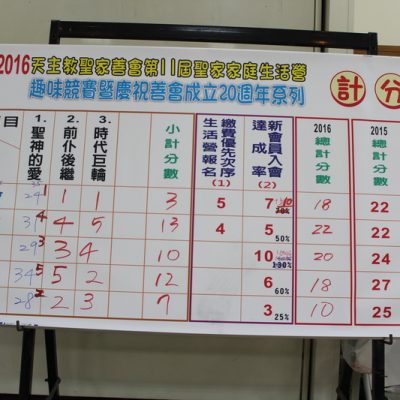 2016天主教聖家善會第11屆聖家家庭生活營
趣味競賽暨慶祝善會成立20週年系列
計 分
目 1.聖神的愛 2.前仆後繼 3.時代巨輪 小計分數 繳費優先次序生活營報名(1) 新會員入會達成率(2) 2016總計分數 2015總計分數
24 1 1 1 3 5 7 10 18 22
31 4 4 5 13 4 5 50% 22 22
29 3 3 4 10 10 130% 20 24
34 5 5 2 12 6 60% 18 27
28 2 2 3 7 3 25% 10 25